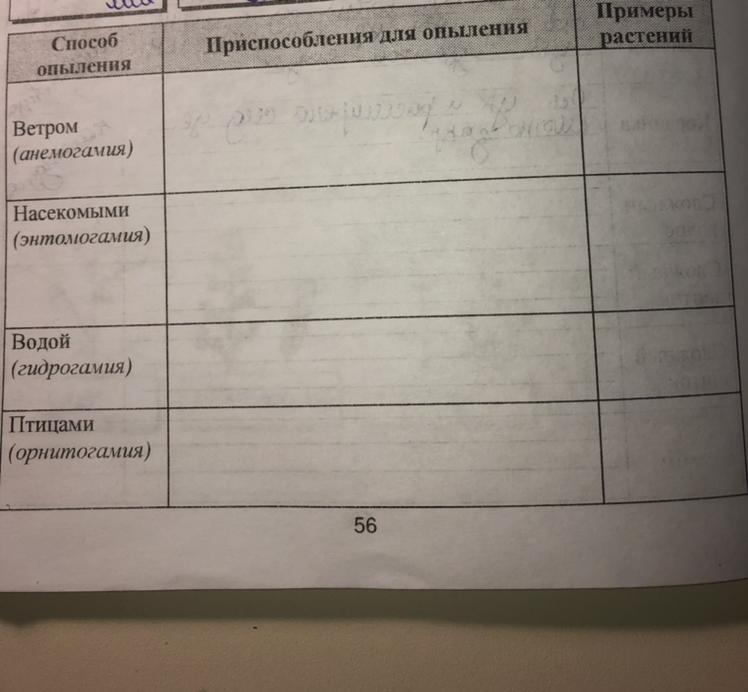 Способ опыления
Приспособления для опыления
Примеры растений
Ветром
(анемогамия)
Насекомыми
(энтомогамия)
Водой
(гидрогамия)
Птицами
(орнитогамия)
56